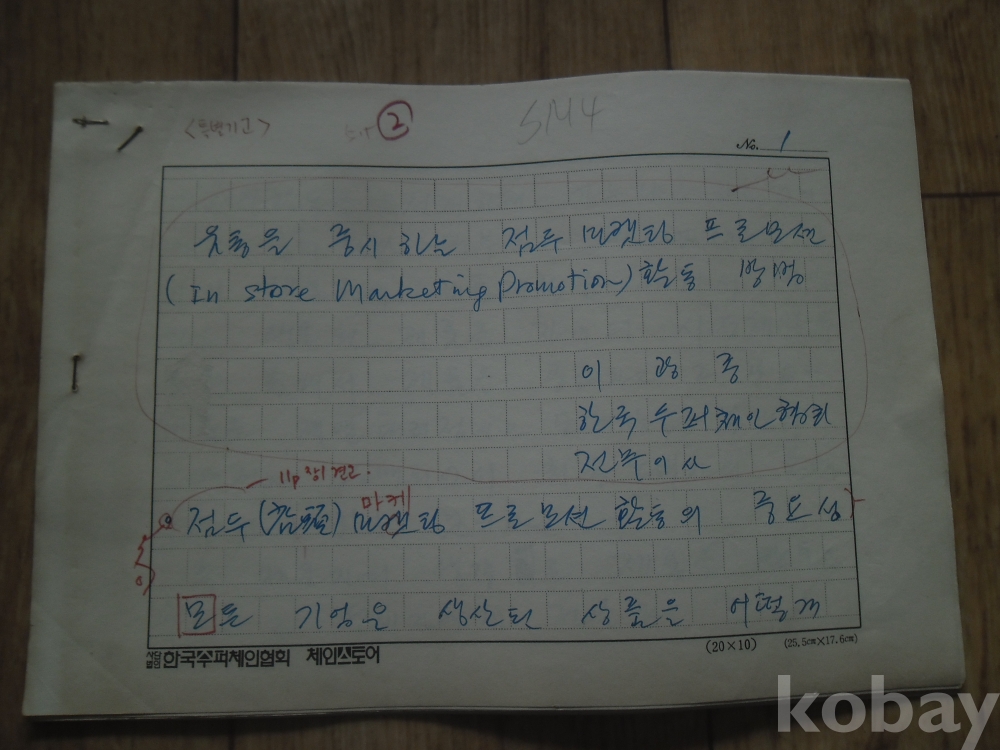 <특별기고> ②
SM4
No. 1
유통을 중시하는 점두 마켓팅 프로모션
(In store Marketing Promotion) 활동 방법
이 광 종
한국수퍼체인협회
전무이사
11p 참 견고.
점두(店頭) 마켓팅 프로모션 활동의 중요성
마케
모든 기업은 생산된 상품을 어떻게
사단법인 한국수퍼체인협회 체인스토어
(20×10) (25.5cm×17.6cm)
kobay